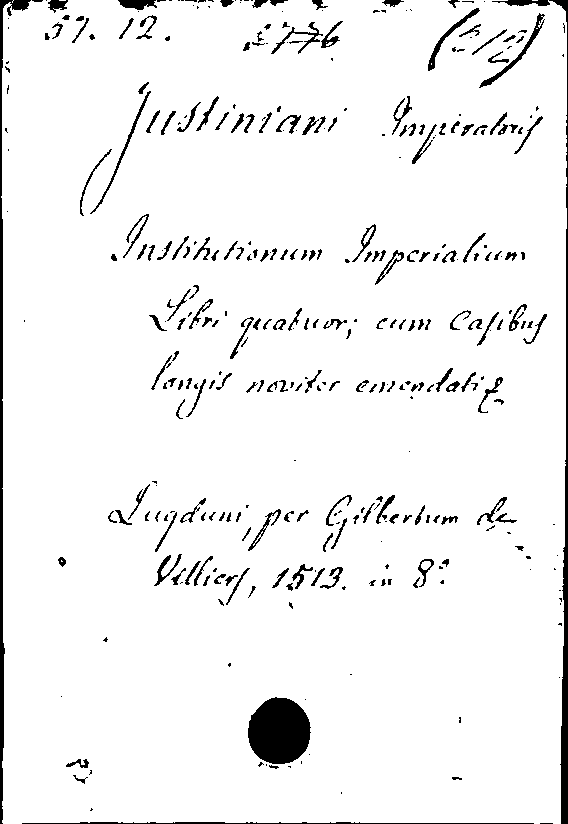 57. 12.
Justiniani Imperatoris
Institutionum Imperialium
Libri quatuor; cum Casibus
longis noviter emendatis
Lugduni, per Gilbertum de
Villiers, 1513. in 8º.